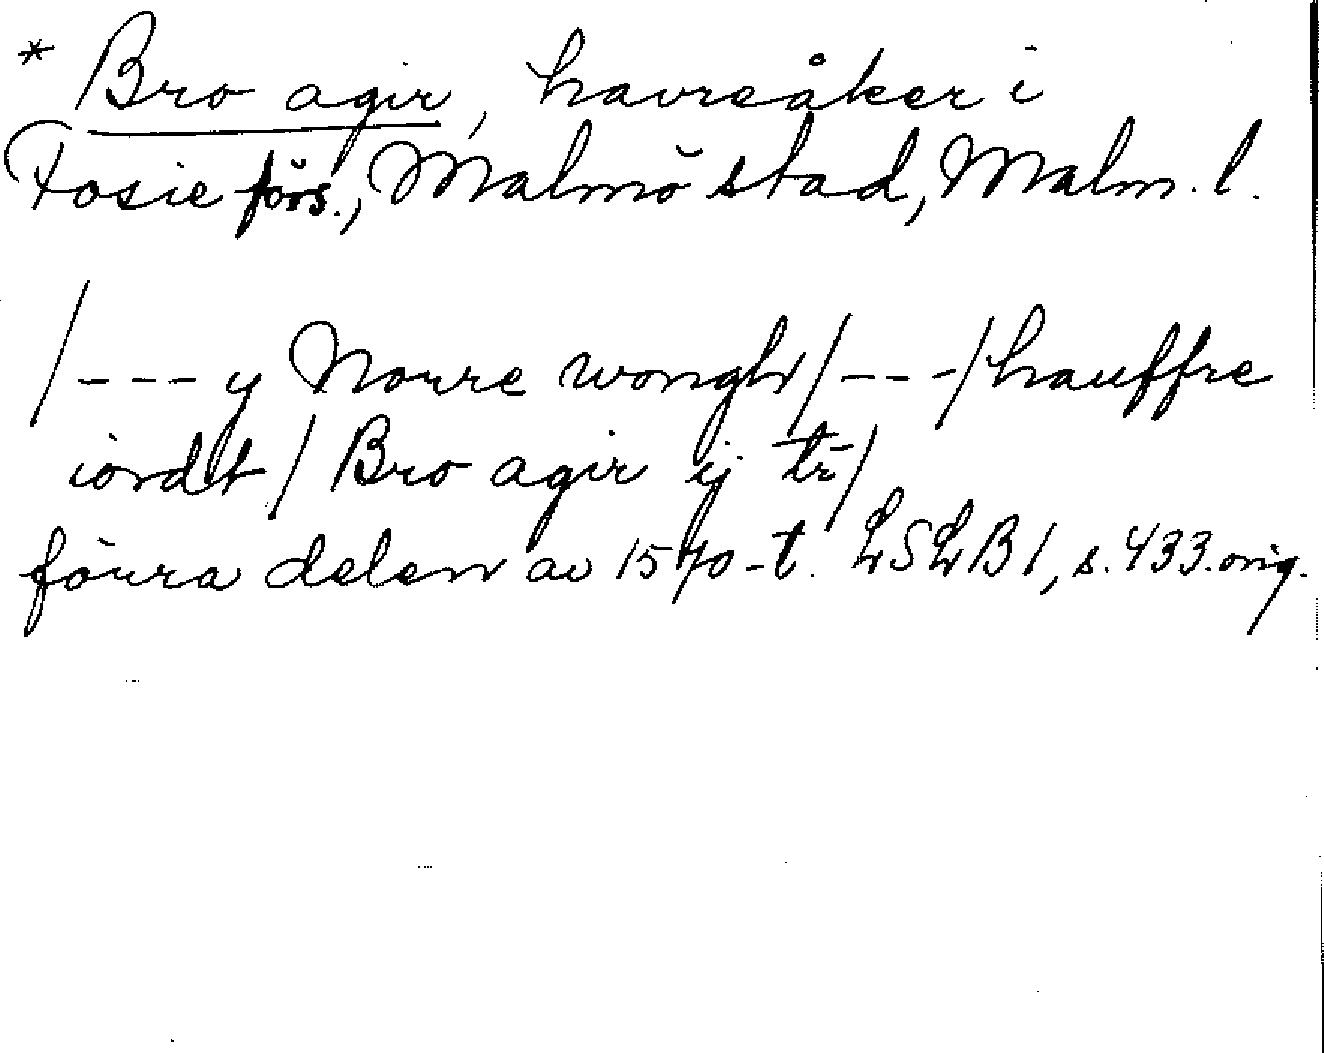 * Bro agir, havreåker i
Fosie förs., Malmö stad, Malm. l.
/--- y Norre wongh/---/hauffre
iordt/ Bro agir ij tr̄/
förra delen av 1570-t. LSLB1, s. 433. orig.